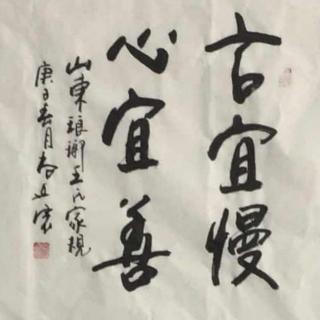 言宜慢
心宜善
山東琅琊王氏家規
庚子春月